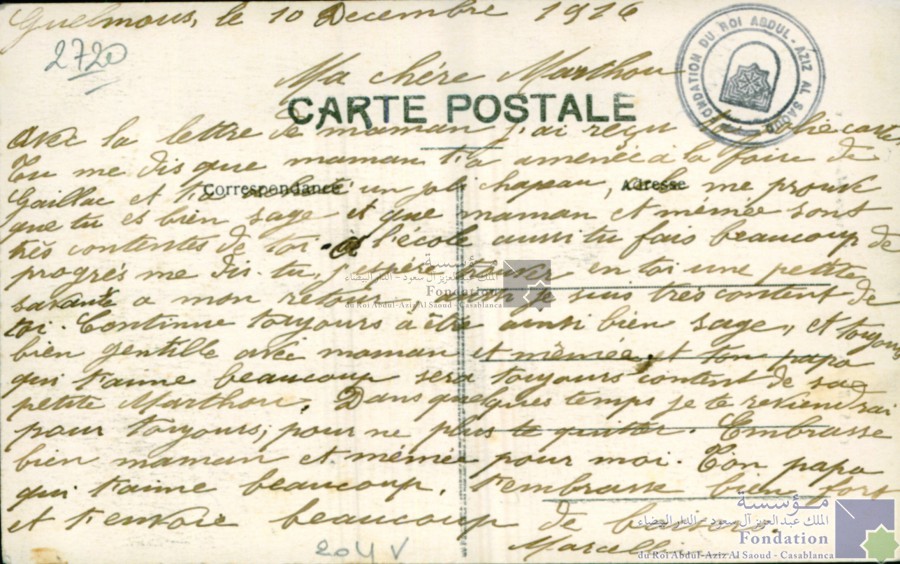 Guelmous, le 10 Decembre 1916
2720
FONDATION DU ROI ABDUL-AZIZ AL SAOUD
Ma chère Marthou
CARTE POSTALE
Correspondance
Adresse
avec la lettre de maman j'ai reçu ta carte
Tu me dis que maman t'a amenée à la foire de
Gaillac et t'a un joli chapeau, cela me prouve
que tu es bien sage et que maman et mémée sont
très contentes de toi. à l'école aussi tu fais beaucoup de
progrès me dis-tu, en toi une petite
savante a mon retour, je suis très content de
toi. Continue toujours à être aussi bien sage, et toujours
bien gentille avec maman et mémée, et ton papa
qui t'aime beaucoup sera toujours content de sa
petite Marthou. Dans quelques temps je te reviendrai
pour toujours, pour ne plus te quitter. Embrasse
bien maman et mémée pour moi. Ton papa
qui t'aime beaucoup, t'embrasse bien fort
et t'envoie beaucoup de
Marcellin
204 V
الملك عبد العزيز آل سعود - الدار البيضاء
Fondation
du Roi Abdul-Aziz Al Saoud - Casablanca
مؤسسة
الملك عبد العزيز آل سعود - الدار البيضاء
Fondation
du Roi Abdul-Aziz Al Saoud - Casablanca